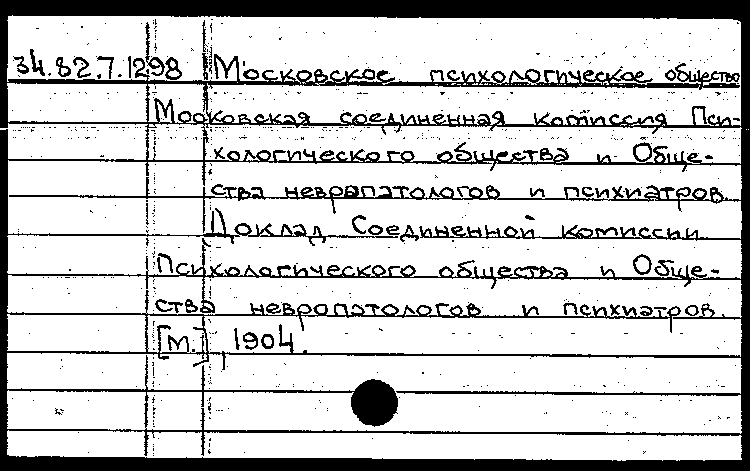 34.82.7.1298 Московское психологическое общество
Московская соединенная комиссия Пси-
хологического общества и Обще-
ства невропатологов и психиатров
Доклад Соединенной комиссии
Психологического общества и Обще-
ства невропатологов и психиатров.
[М.], 1904.